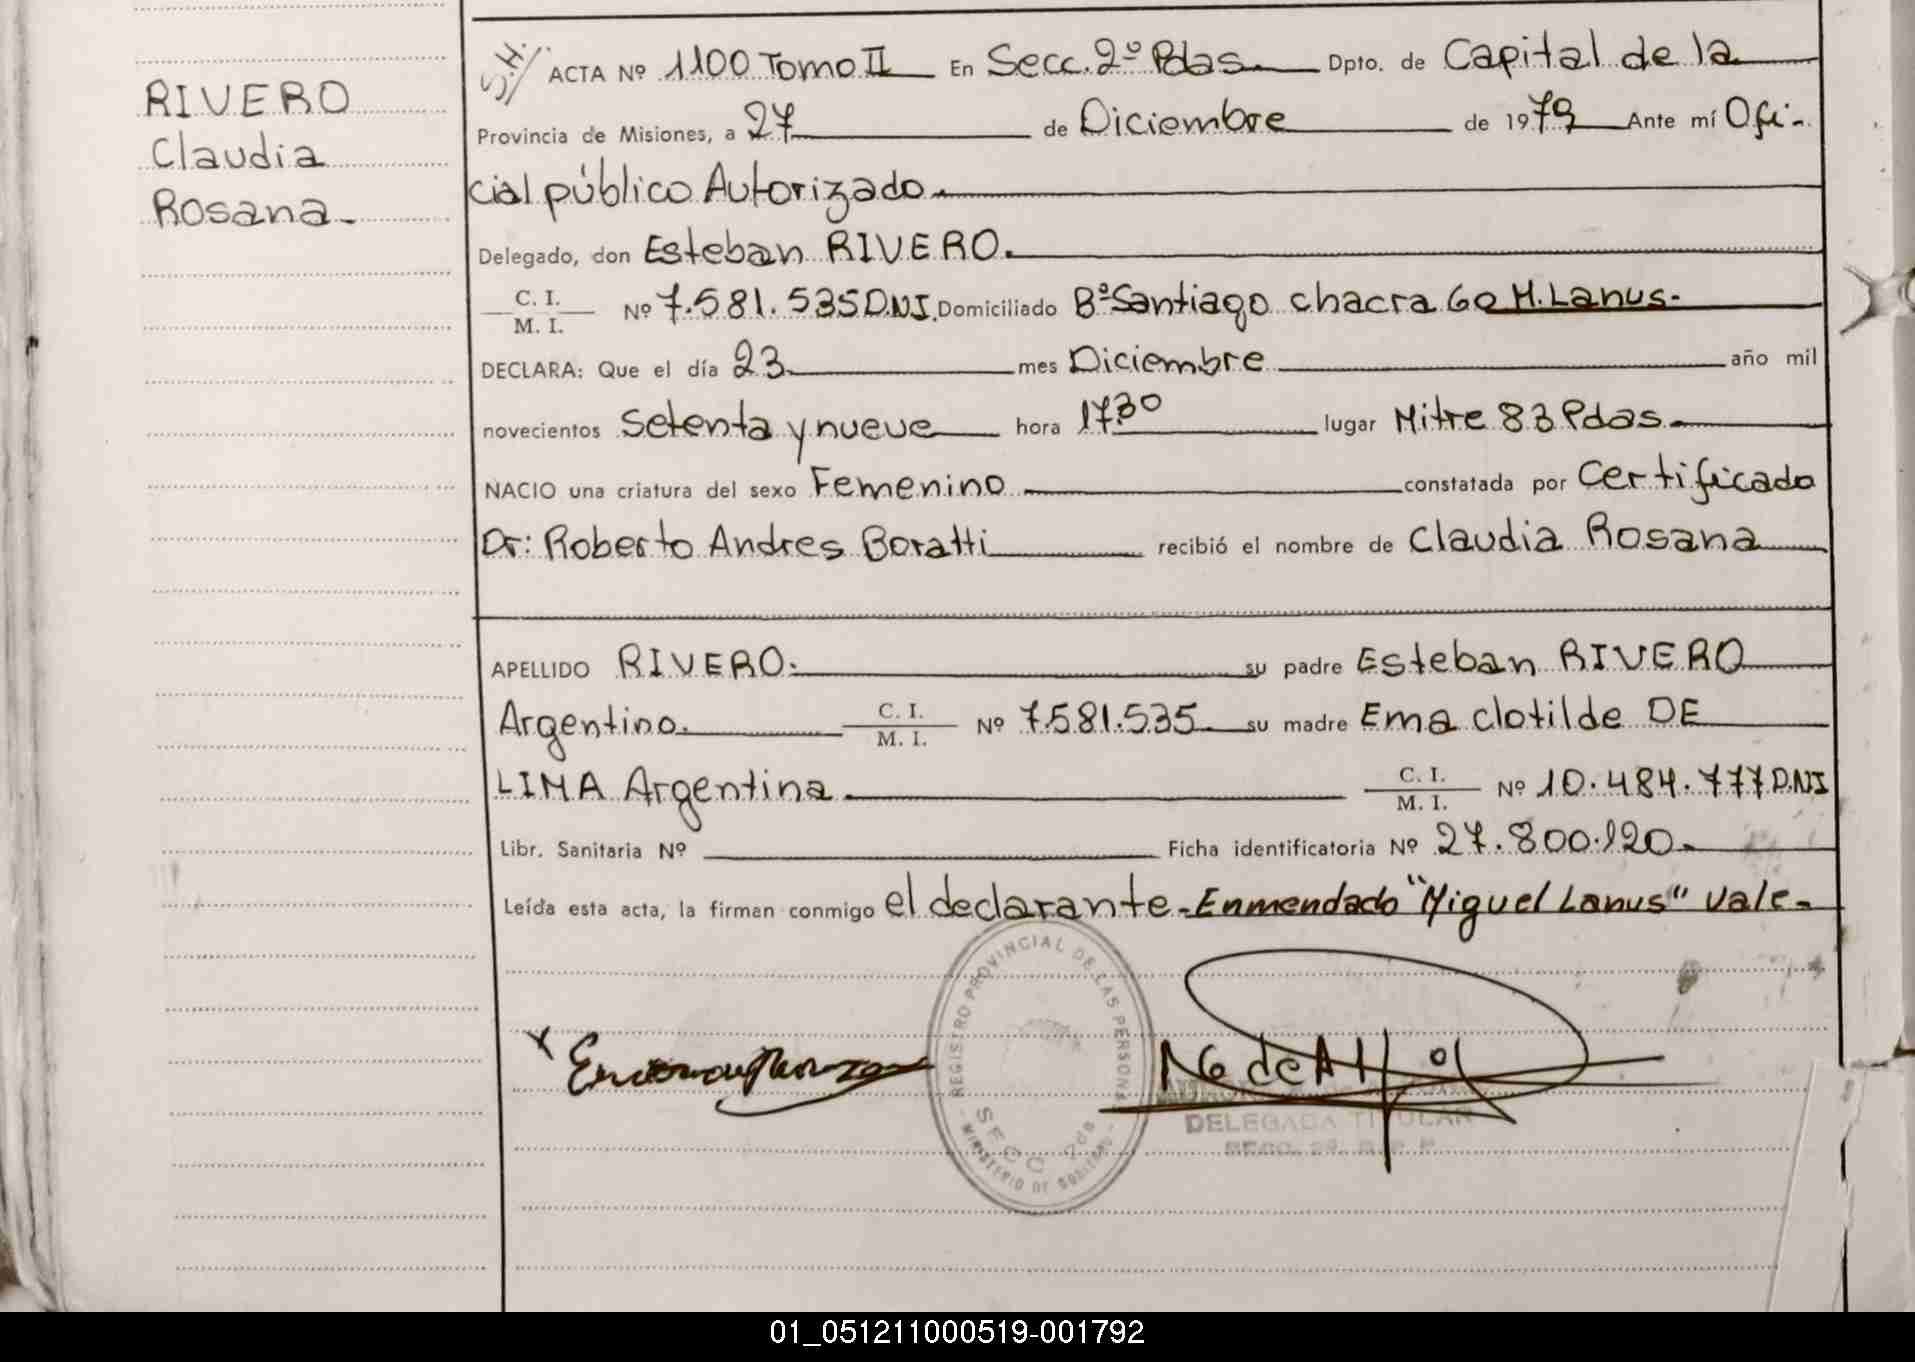 RIVERO
Claudia
Rosana.
S.H. ACTA Nº 1100 Tomo II En Secc. 2º Pdas. Dpto. de Capital de la
Provincia de Misiones, a 27 de Diciembre de 1979 Ante mí Ofi-
cial público Autorizado.
Delegado, don Esteban RIVERO.
C. I.
M. I. Nº 7.581.535 D.N.I. Domiciliado Bº Santiago chacra 60 M. Lanus.
DECLARA: Que el día 23 mes Diciembre año mil
novecientos setenta y nueve hora 1730 lugar Mitre 83 Pdas.
NACIO una criatura del sexo Femenino constatada por Certificado
Dr: Roberto Andres Boratti recibió el nombre de Claudia Rosana
APELLIDO RIVERO. su padre Esteban RIVERO
Argentino. C. I.
M. I. Nº 7.581.535 su madre Ema Clotilde DE
LIMA Argentina C. I.
M. I. Nº 10.484.777 D.N.I
Libr. Sanitaria Nº Ficha identificatoria Nº 27.800.120.
Leída esta acta, la firman conmigo el declarante - Enmendado "Miguel Lanus" Vale.
REGISTRO PROVINCIAL DE LAS PERSONAS
SECC 2da
MINISTERIO DE GOBIERNO
DELEGADA TITULAR
01_051211000519-001792